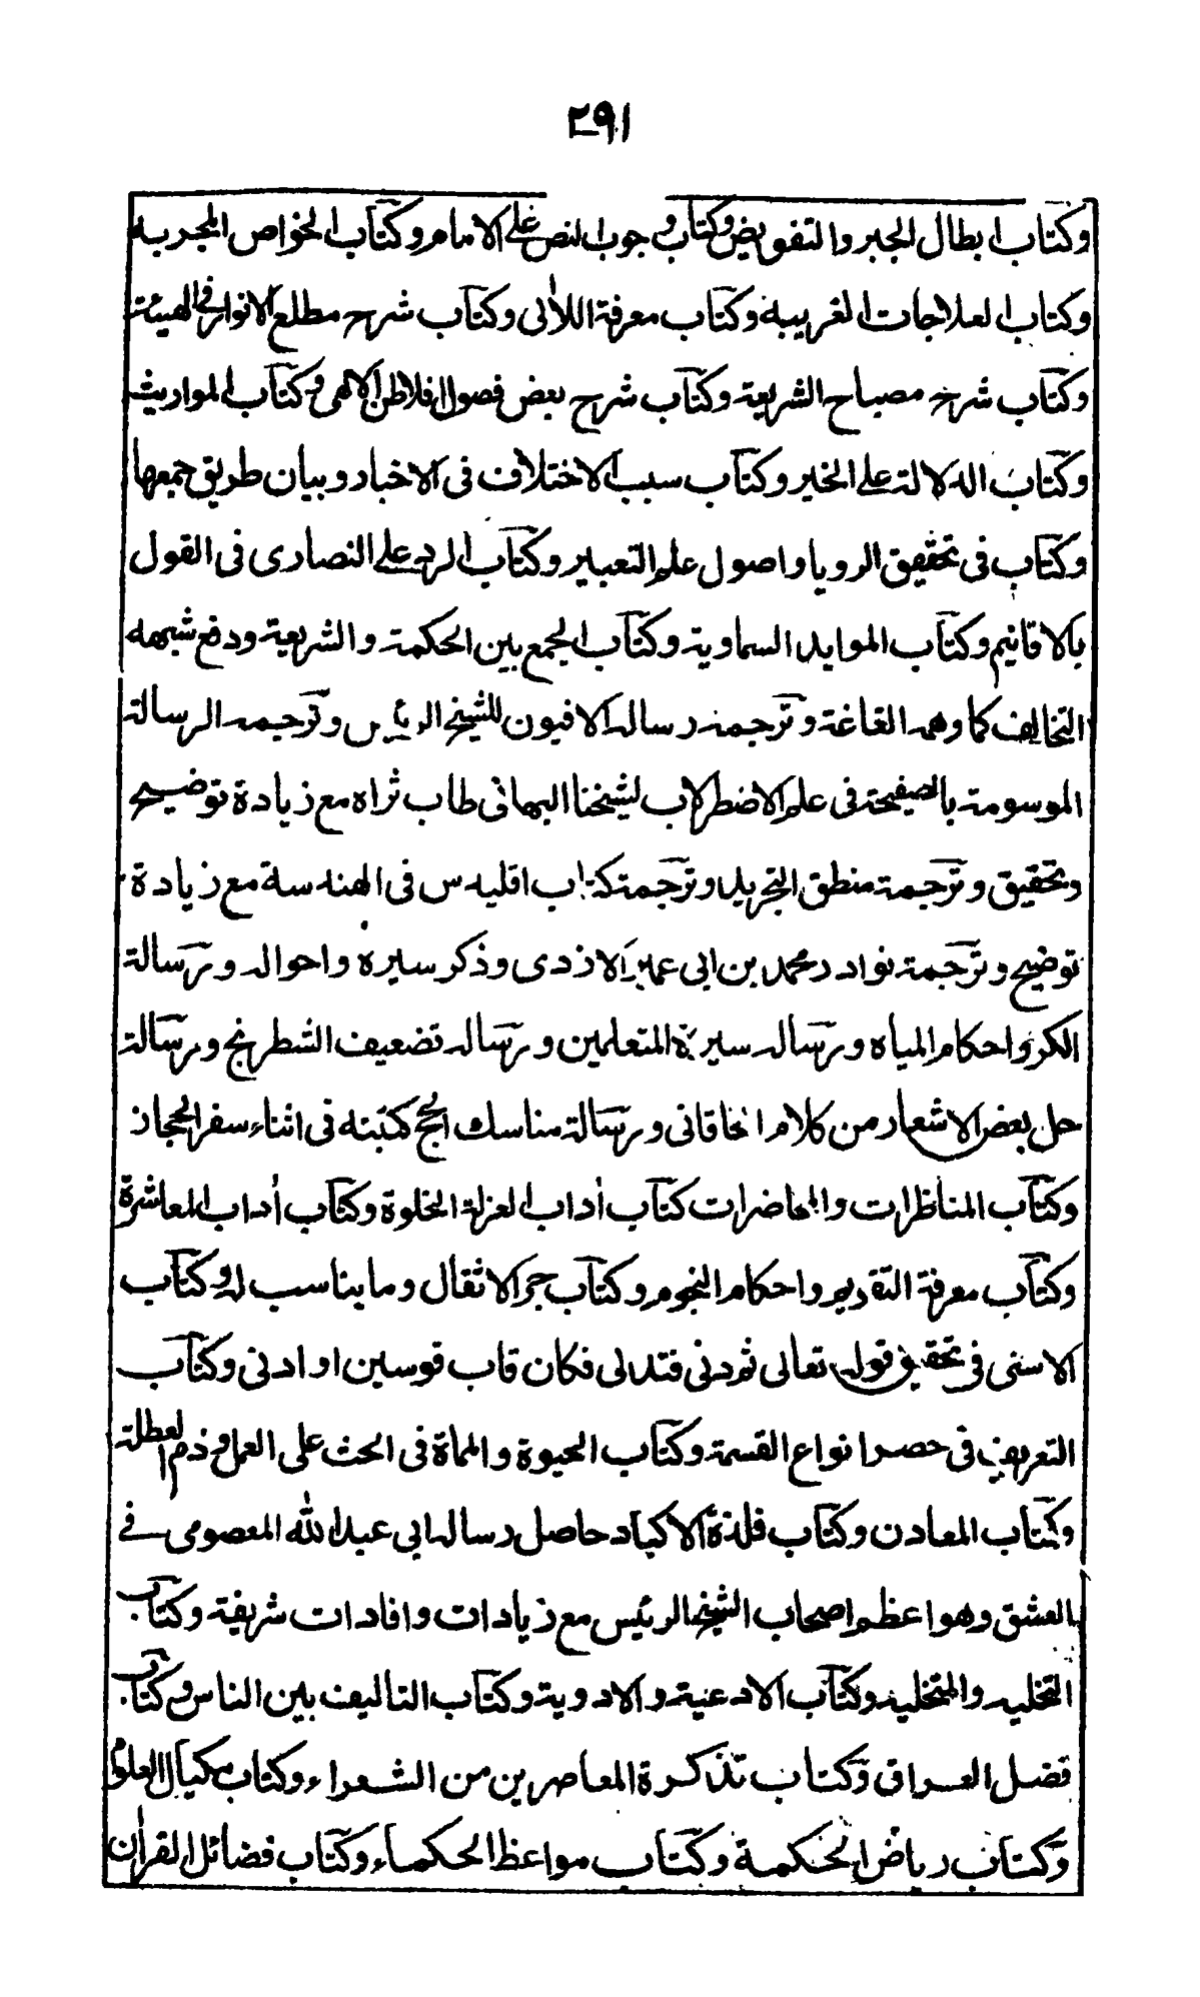 ٢٩١
وكتاب ابطال الجبر والتفويض وكتاب وجوب النص على الامام وكتاب الخواص المجربه
وكتاب العلاجات الغريبه وكتاب معرفة اللآلى وكتاب شرح مطلع الانوار فى الهيئة
وكتاب شرح مصباح الشريعة وكتاب شرح بعض فصول افلاطن الالهى وكتاب المواريث
وكتاب الدلالة على الخير وكتاب سبب الاختلاف فى الاخبار وبيان طريق جمعها
وكتاب فى تحقيق الرويا واصول علم التعبير وكتاب الرد على النصارى فى القول
بالاقانيم وكتاب الموايد السماوية وكتاب الجمع بين الحكمة والشريعة ودفع شبهه
التخالف كما وهمه الفاغة وترجمة رساله الافيون للشيخ الرئيس وترجمه الرسالة
الموسومة بالصفيحة فى علم الاضطرلاب لشيخنا البهائى طاب ثراه مع زيادة توضيح
وتحقيق وترجمة منطق التجريد وترجمة كتاب اقليدس فى الهندسة مع زيادة
توضيح وترجمة نوادر محمد بن ابى عمير الازدى وذكر سيره واحواله ورسالة
الكر واحكام المياه ورساله سيرة المتعلمين ورساله تضعيف الشطرنج ورسالة
حل بعض الاشعار من كلام الخاقانى ورسالة مناسك الحج كتبته فى اثناء سفر الحجاز
وكتاب المناظرات والمحاضرات كتاب أداب العزلة الخلوة وكتاب أداب المعاشرة
وكتاب معرفة التقديم واحكام النجوم وكتاب جر الاثقال وما يناسب له وكتاب
الاسنى فى تحقيق قوله تعالى ثم دنى فتدلى فكان قاب قوسين او ادنى وكتاب
التعريف فى حصر انواع القسمة وكتاب الحيوة والمماة فى الحث على العمل وذم العطلة
وكتاب المعادن وكتاب فلذة الاكباد حاصل رساله ابى عبدالله المعصومى فى
العشق وهو اعظم اصحاب الشيخ الرئيس مع زيادات وافادات شريفة وكتاب
التخليه والتحليه وكتاب الادعية والادوية وكتاب التاليف بين الناس وكتاب
فضل العراق وكتاب تذكرة المعاصرين من الشعراء وكتاب مكيال العلوم
وكتاب رياض الحكمة وكتاب مواعظ الحكماء وكتاب فضائل القرآن